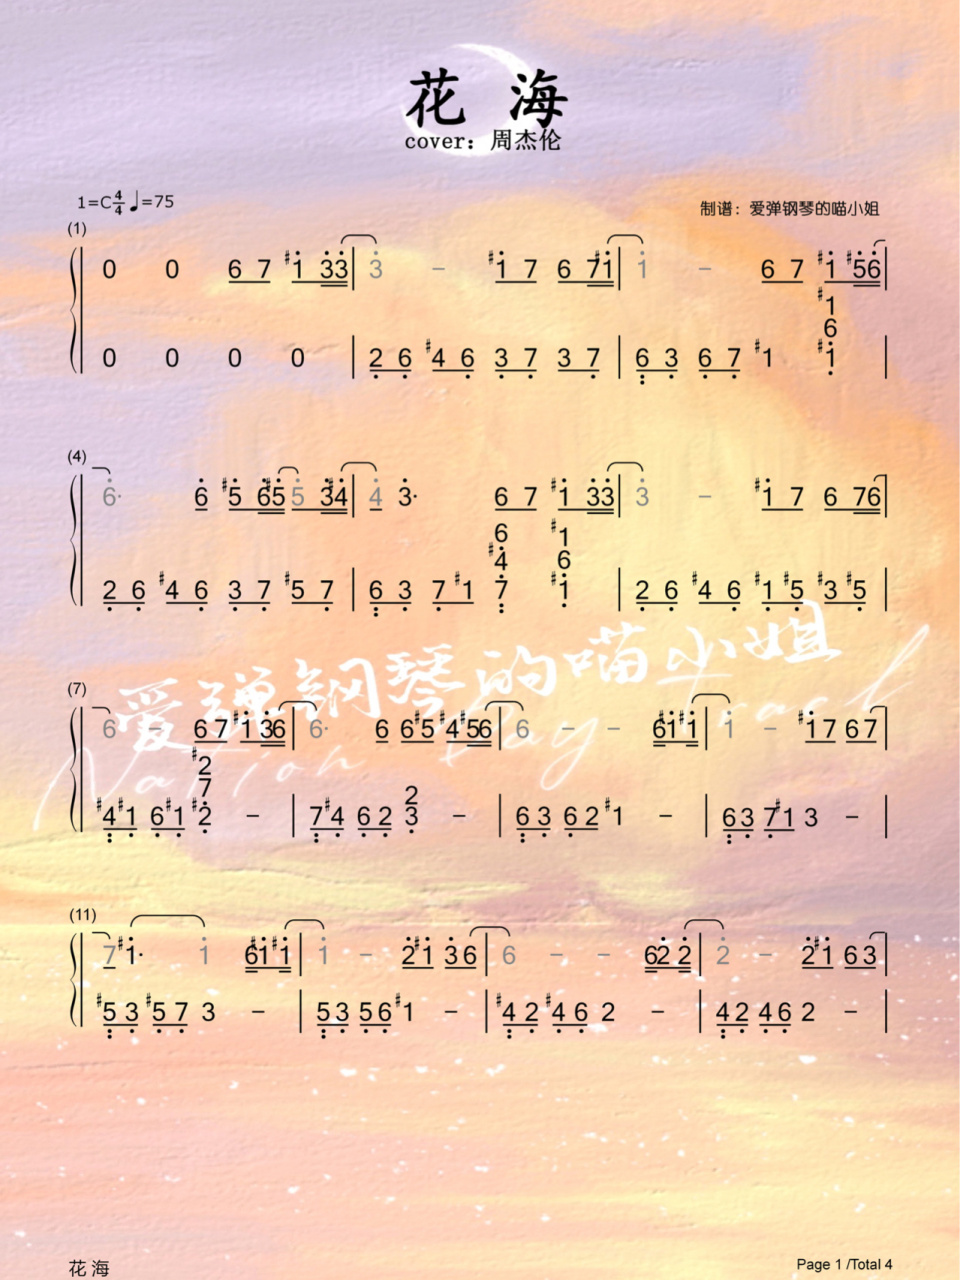 花 海
cover: 周杰伦
1=C 4/4 ♩=75
制谱：爱弹钢琴的喵小姐
(1)
0 0 6 7 #1̇ 3̇3̇ | 3̇ – #1̇ 7 6 71̇ | 1̇ – 6 7 #1̇ #5̇6̇ |
#1
6
0 0 0 0 | 2 6 #4 6 3 7 3 7 | 6 3 6 7 #1 #1 |
(4)
6̇· 6̇ #5̇ 6̇5̇ 5̇ 3̇#4̇ | 4̇ 3̇· 6 7 #1̇ 3̇3̇ | 3̇ – #1̇ 7 6 76 |
6 #1
#4 6
2 6 #4 6 3 7 #5 7 | 6 3 7 #1 7 #1 | 2 6 #4 6 #1 #5 #3 #5 |
爱弹钢琴的喵小姐
(7)
6 – 6 7 #1̇ 3̇6 | 6· 6 6#5 #4#56 | 6 – – 6#1̇#1̇ | 1̇ – #1̇7 67 |
#2
7 2
#4#1 6#1 #2 – | 7#4 62 3 – | 63 62 #1 – | 63 7#1 3 – |
(11)
7 #1̇· 1̇ 6#1̇#1̇ | 1̇ – 2̇#1̇ 3̇6 | 6 – – 62̇2̇ | 2̇ – 2̇#1̇ 63 |
#53 #57 3 – | 53 56 #1 – | #42 #46 2 – | 42 46 2 – |
花 海
Page 1 /Total 4